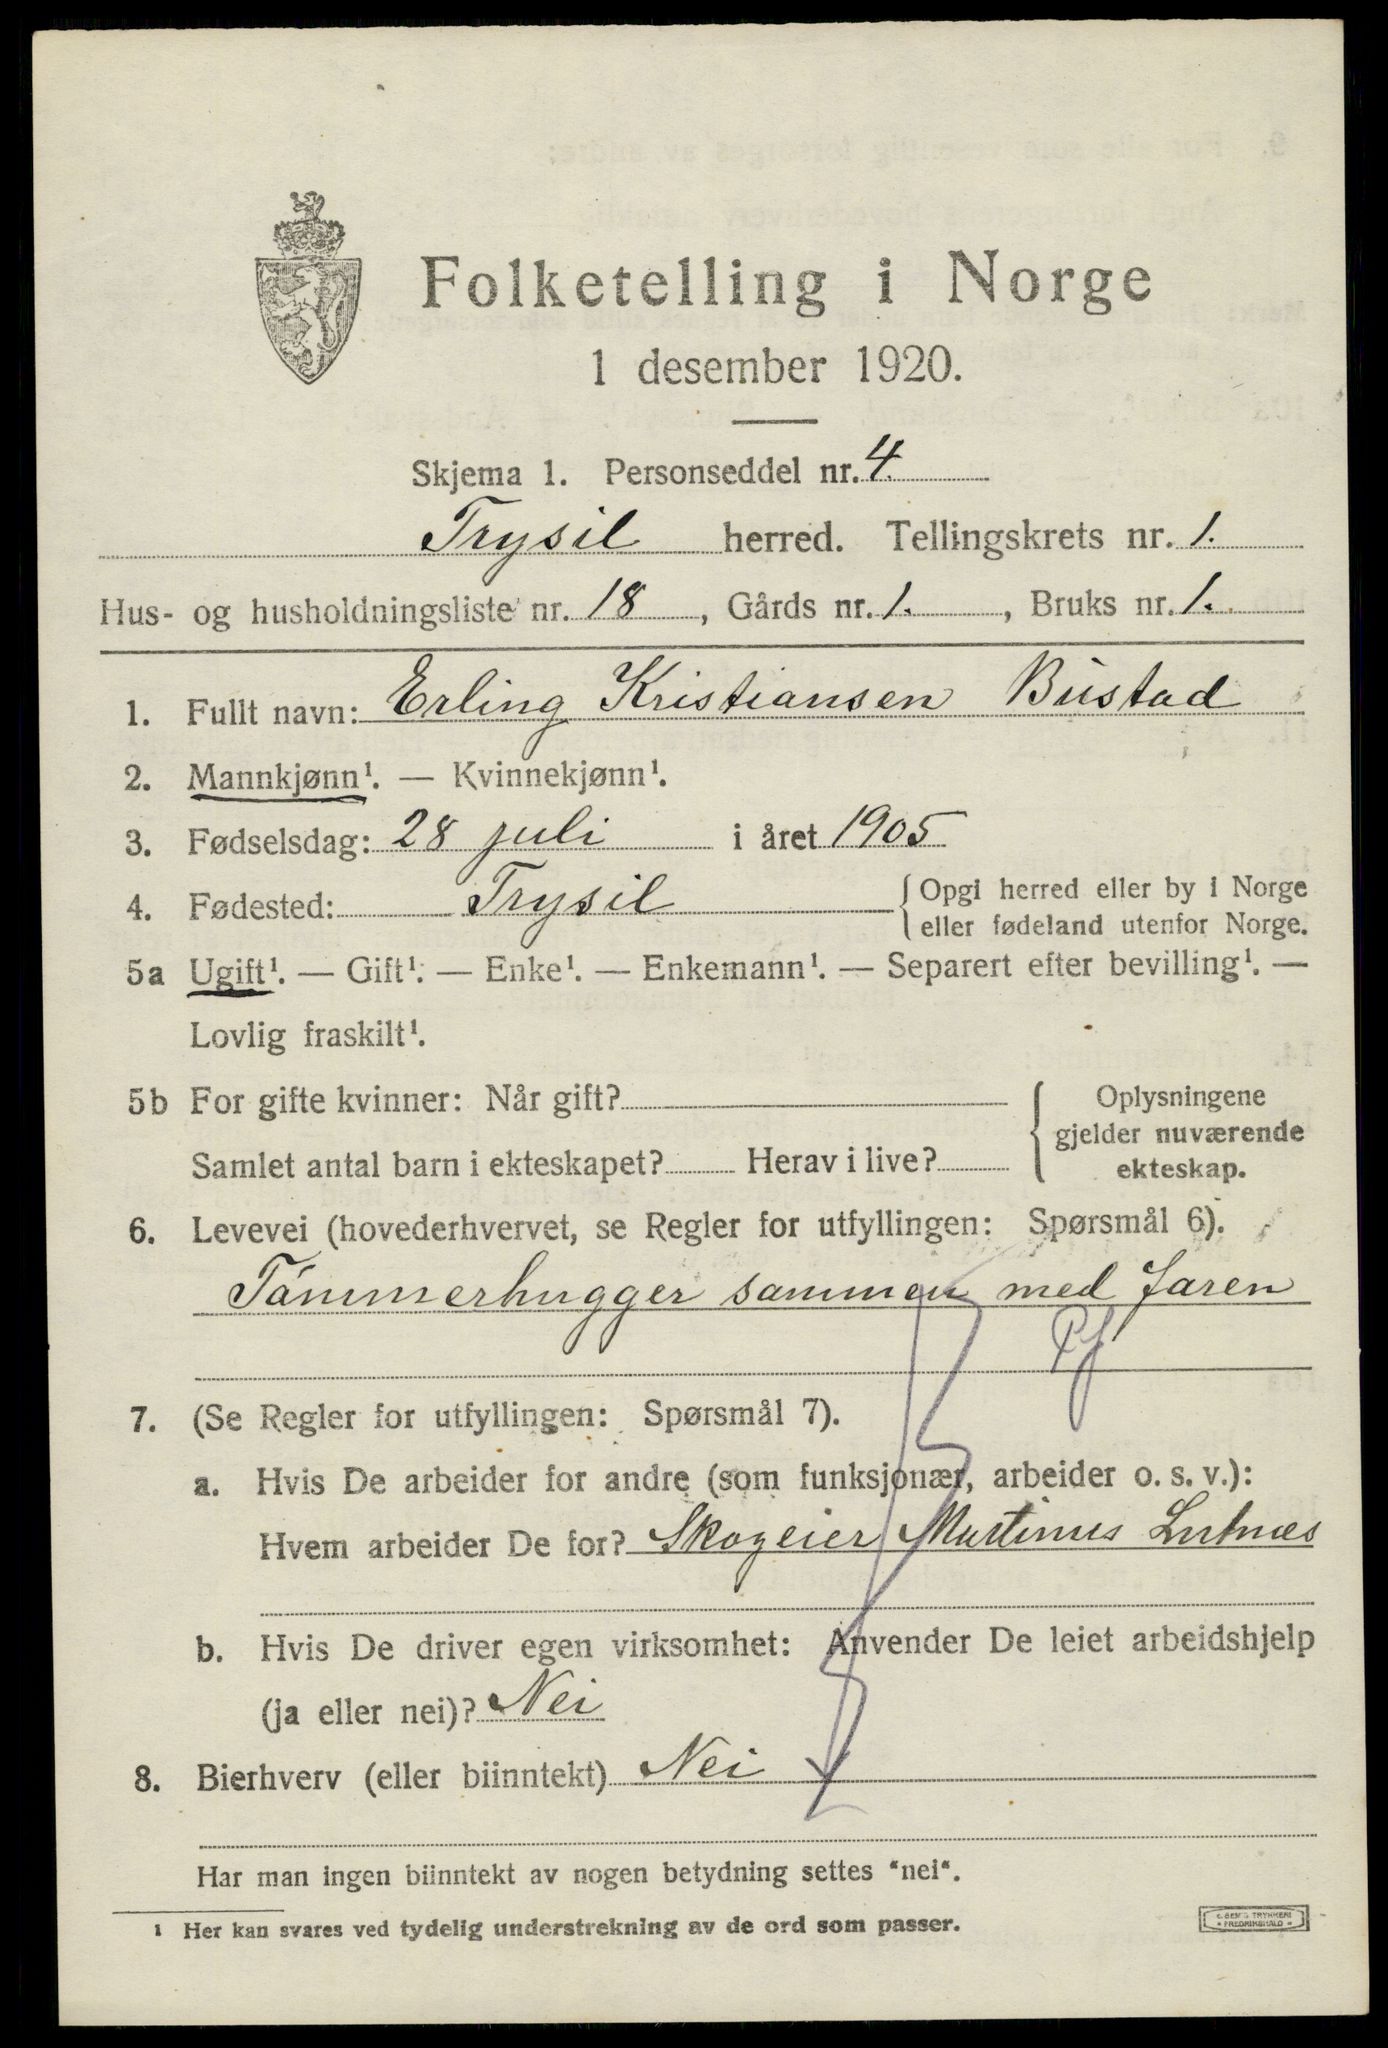 Folketelling i Norge
1 desember 1920.
Skjema 1. Personseddel nr. 4.
Trysil herred. Tellingskrets nr. 1.
Hus- og husholdningsliste nr. 18, Gårds nr. 1., Bruks nr. 1.
1. Fullt navn: Erling Kristiansen Bustad
2. Mannkjønn¹. — Kvinnekjønn¹.
3. Fødselsdag: 28 juli i året 1905
4. Fødested: Trysil { Opgi herred eller by i Norge
eller fødeland utenfor Norge.
5a Ugift¹. — Gift¹. — Enke¹. — Enkemann¹. — Separert efter bevilling¹. —
Lovlig fraskilt¹.
5b For gifte kvinner: Når gift? { Oplysningene
gjelder nuværende
Samlet antal barn i ekteskapet? Herav i live? ekteskap.
6. Levevei (hovederhvervet, se Regler for utfyllingen: Spørsmål 6).
Tømmerhugger sammen med Faren
7. (Se Regler for utfyllingen: Spørsmål 7).
a. Hvis De arbeider for andre (som funksjonær, arbeider o. s. v.):
Hvem arbeider De for? Skogeier Martinus Lutnæs
b. Hvis De driver egen virksomhet: Anvender De leiet arbeidshjelp
(ja eller nei)? Nei
8. Bierhverv (eller biinntekt) Nei
Har man ingen biinntekt av nogen betydning settes "nei".
¹ Her kan svares ved tydelig understrekning av de ord som passer.